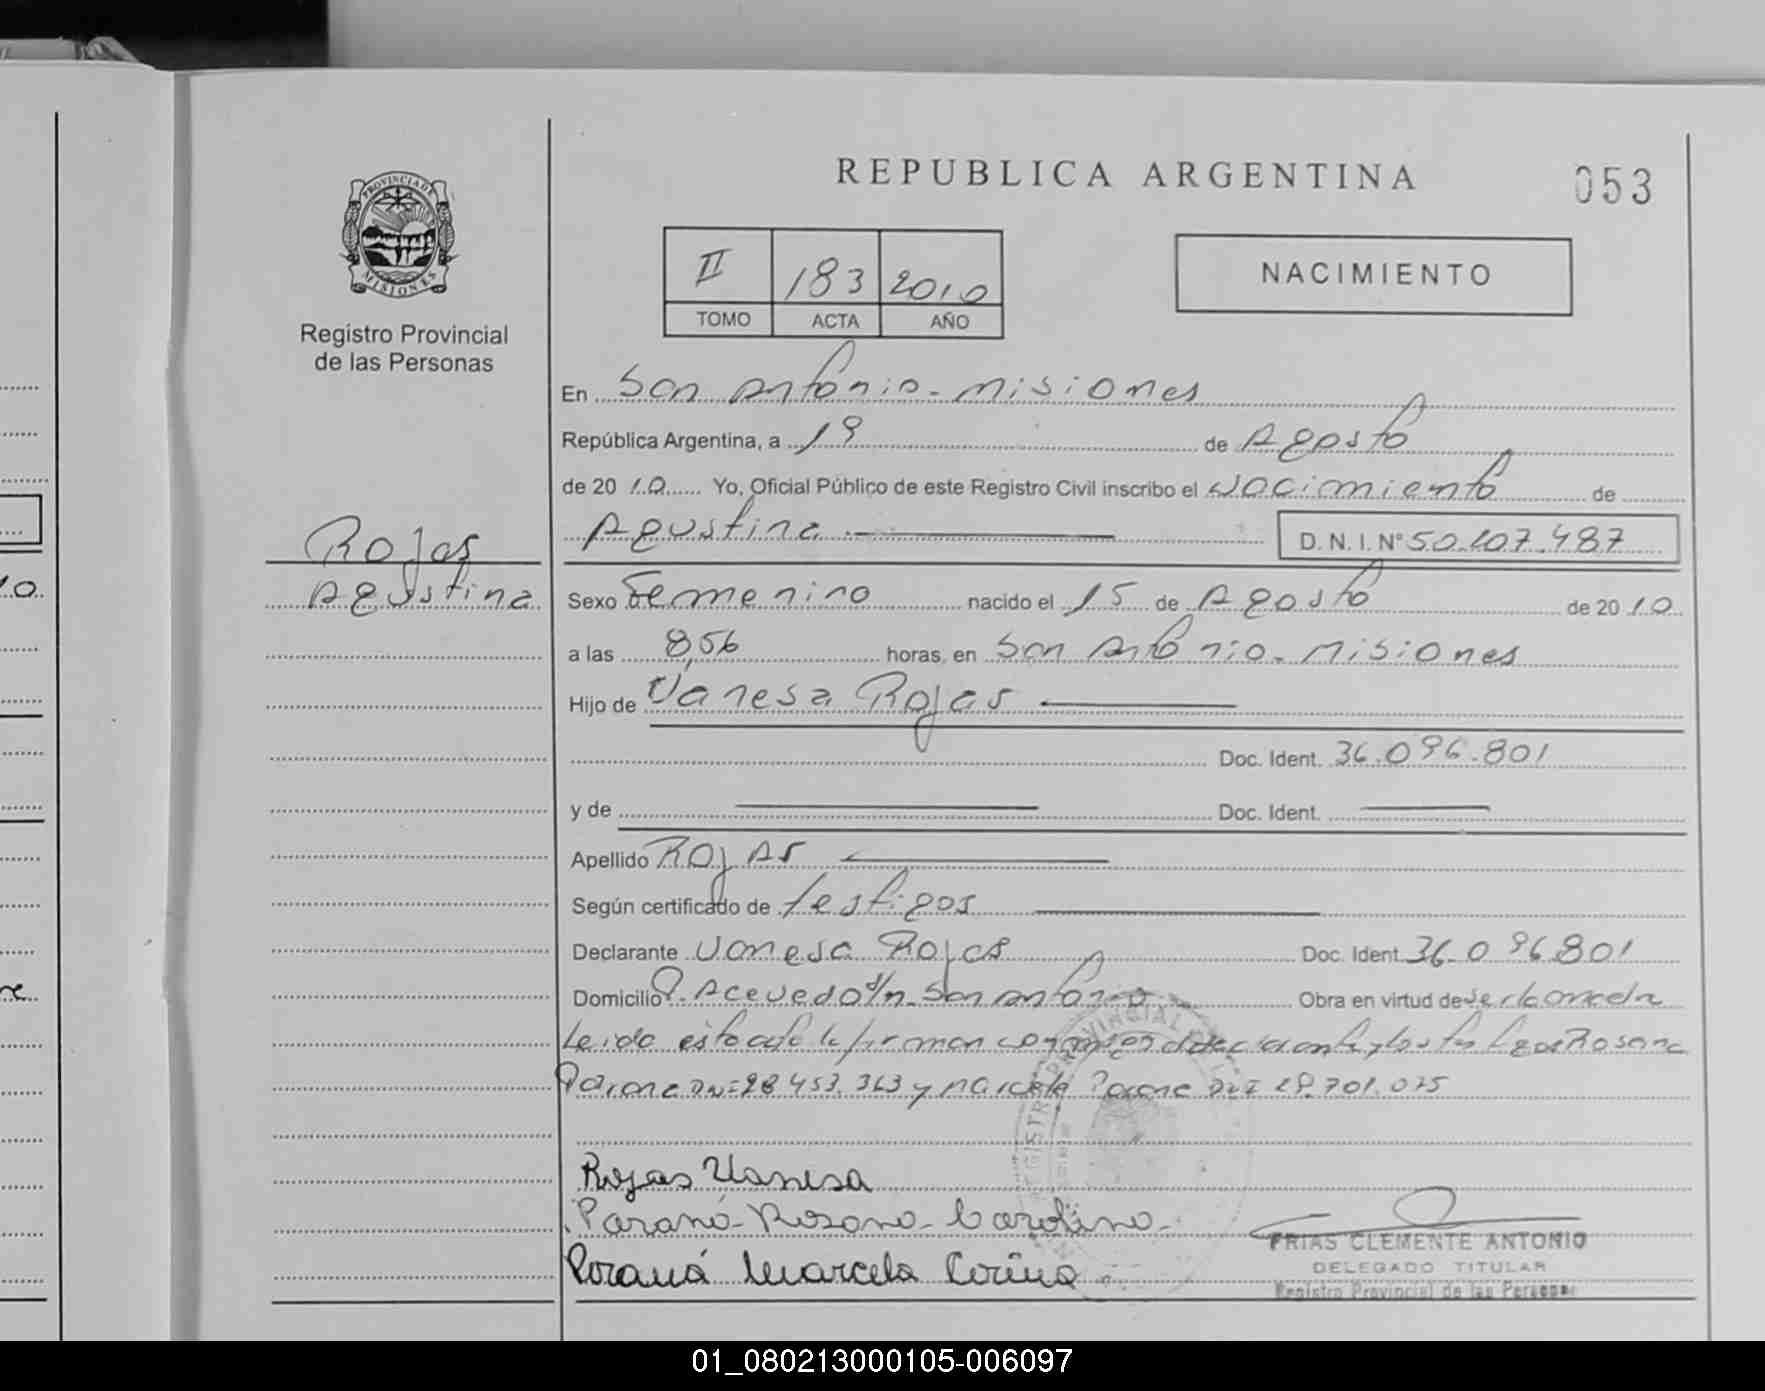 REPUBLICA ARGENTINA
053
PROVINCIA DE MISIONES
Registro Provincial
de las Personas
II 183 2010
TOMO ACTA AÑO
NACIMIENTO
En San Antonio - Misiones
República Argentina, a 19 de Agosto
de 20 10 Yo, Oficial Público de este Registro Civil inscribo el Nacimiento de
Agustina D.N.I. Nº 50.207.487
Rojas
Agustina
Sexo Femenino nacido el 15 de Agosto de 20 10
a las 8,56 horas, en San Antonio - Misiones
Hijo de Vanesa Rojas
Doc. Ident. 36.096.801
y de Doc. Ident.
Apellido Rojas
Según certificado de testigos
Declarante Vanesa Rojas Doc. Ident. 36.096.801
Domicilio P. Acevedo s/n San Antonio Obra en virtud de ser la madre
Leido esta acta la firman declarante y los testigos Rosana
Parana DNI 28 453.363 y Marcela Parana DNI 29.701.075
Rojas Vanesa
Paraná - Rosana - Carolina -
Paraná Marcela Corina
FRIAS CLEMENTE ANTONIO
DELEGADO TITULAR
Registro Provincial de las Personas
10
01_080213000105-006097